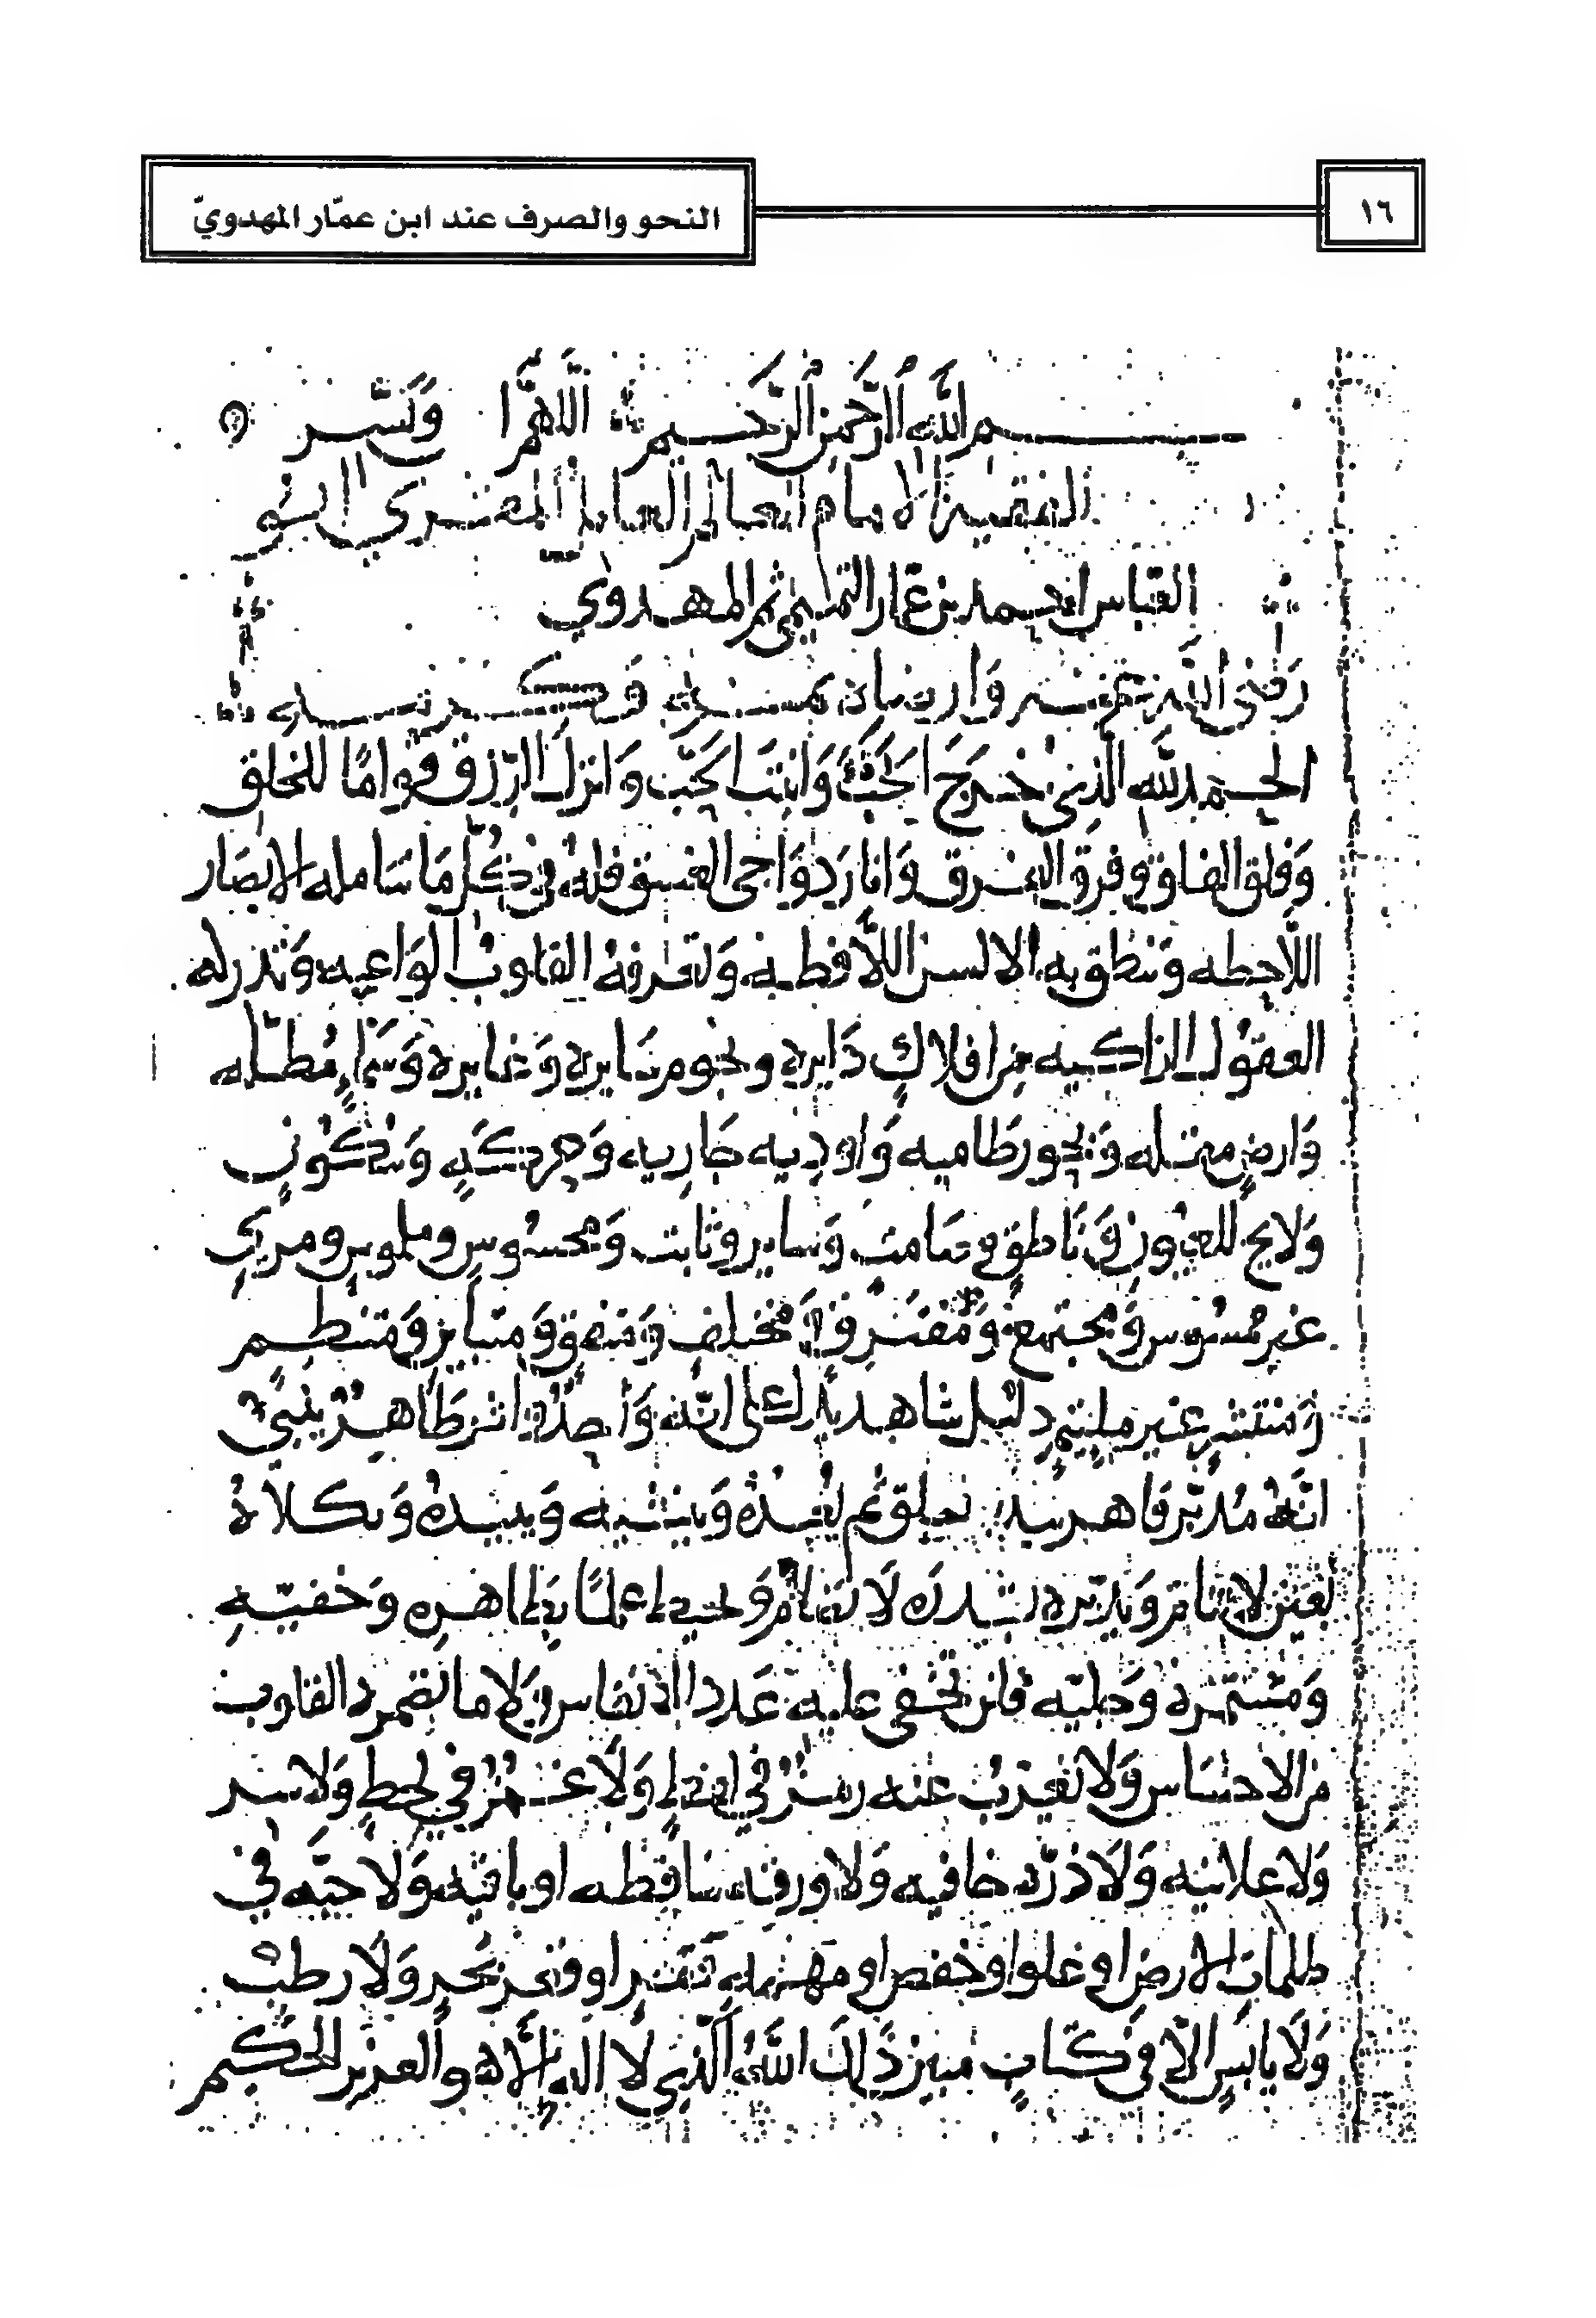 ١٦
النحو والصرف عند ابن عمّار المهدويّ
بسم الله الرحمن الرحيم اللهم ويسر
الفقيه الامام العالم العامل المقري ابو
العباس احمد بن عمار التميمي ثم المهدوي
رضي الله عنه وارضاه
الحمد لله الذي خرج الحب وانبت وانزل الرزق قواما للخلق
وفلق الفلق وفرق الفرق وانار دواجي الغسق فله في كل ما تتامله الابصار
اللاحظه وتنطق به الالسن اللافظه وتعرفه القلوب الواعيه وتدركه
العقول الزاكيه من افلاك دايره ونجوم سايره وغايره وسماء مظله
وارض مقله وبحور طاميه واوديه جاريه وحركه وسكون
ولايح للعيون وناطق وصامت وساير وثابت ومحسوس وملموس ومري
غير محسوس ومجتمع ومفترق ومختلف ومتفق ومتباين ومنتظم
ومنتشر غير ملتيم دليل شاهد يدل على انه واحد واثر ظاهر ينبي
انه مدبر قاهر يخلق ثم يعيده وينشيه ويبيده ويكلاه
بعين لا تنام ويدبره لا يضام ويحيط علما بظاهره وخفيه
ومستتره وجليه فلن تخفى عليه عدد الانفاس ولا ما تضمره القلوب
من الاحساس ولا يعزب عنه رمز في لفظ ولا غمز في لحظ ولا سر
ولا علانيه ولا ذره خافيه ولا ورقه ساقطه او باقيه ولا حبه في
ظلمات الارض او علو او خفض او مهمه قفر او قعر بحر ولا رطب
ولا يابس الا في كتاب مبين ذلك الله الذي لا اله الا هو العزيز الحكيم